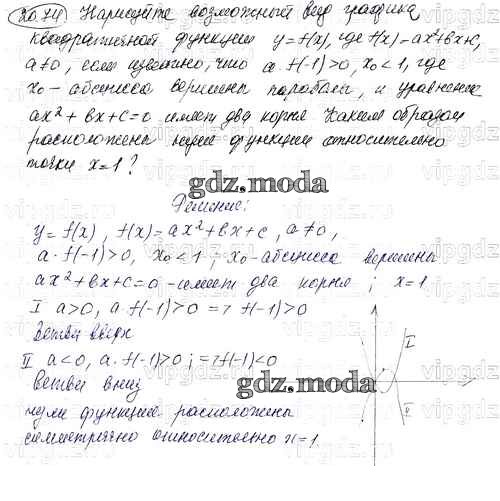 20.74 Нарисуйте возможный вид графика
квадратичной функции y=f(x), где f(x)=ax²+bx+c,
a≠0, если известно, что a·f(-1)>0, x₀<1, где
x₀ - абсцисса вершины параболы, и уравнение
ax²+bx+c=0 имеет два корня. Каким образом
расположены нули функции относительно
точки x=1?
gdz.moda
Решение:
y=f(x), f(x)=ax²+bx+c, a≠0,
a·f(-1)>0, x₀<1; x₀-абсцисса вершины
ax²+bx+c=0 -имеет два корня; x=1
I a>0, a·f(-1)>0 => f(-1)>0
Ветви вверх
I
II a<0, a·f(-1)>0; =>f(-1)<0
Ветви вниз
gdz.moda
II
нули функции расположены
симметрично относительно x=1